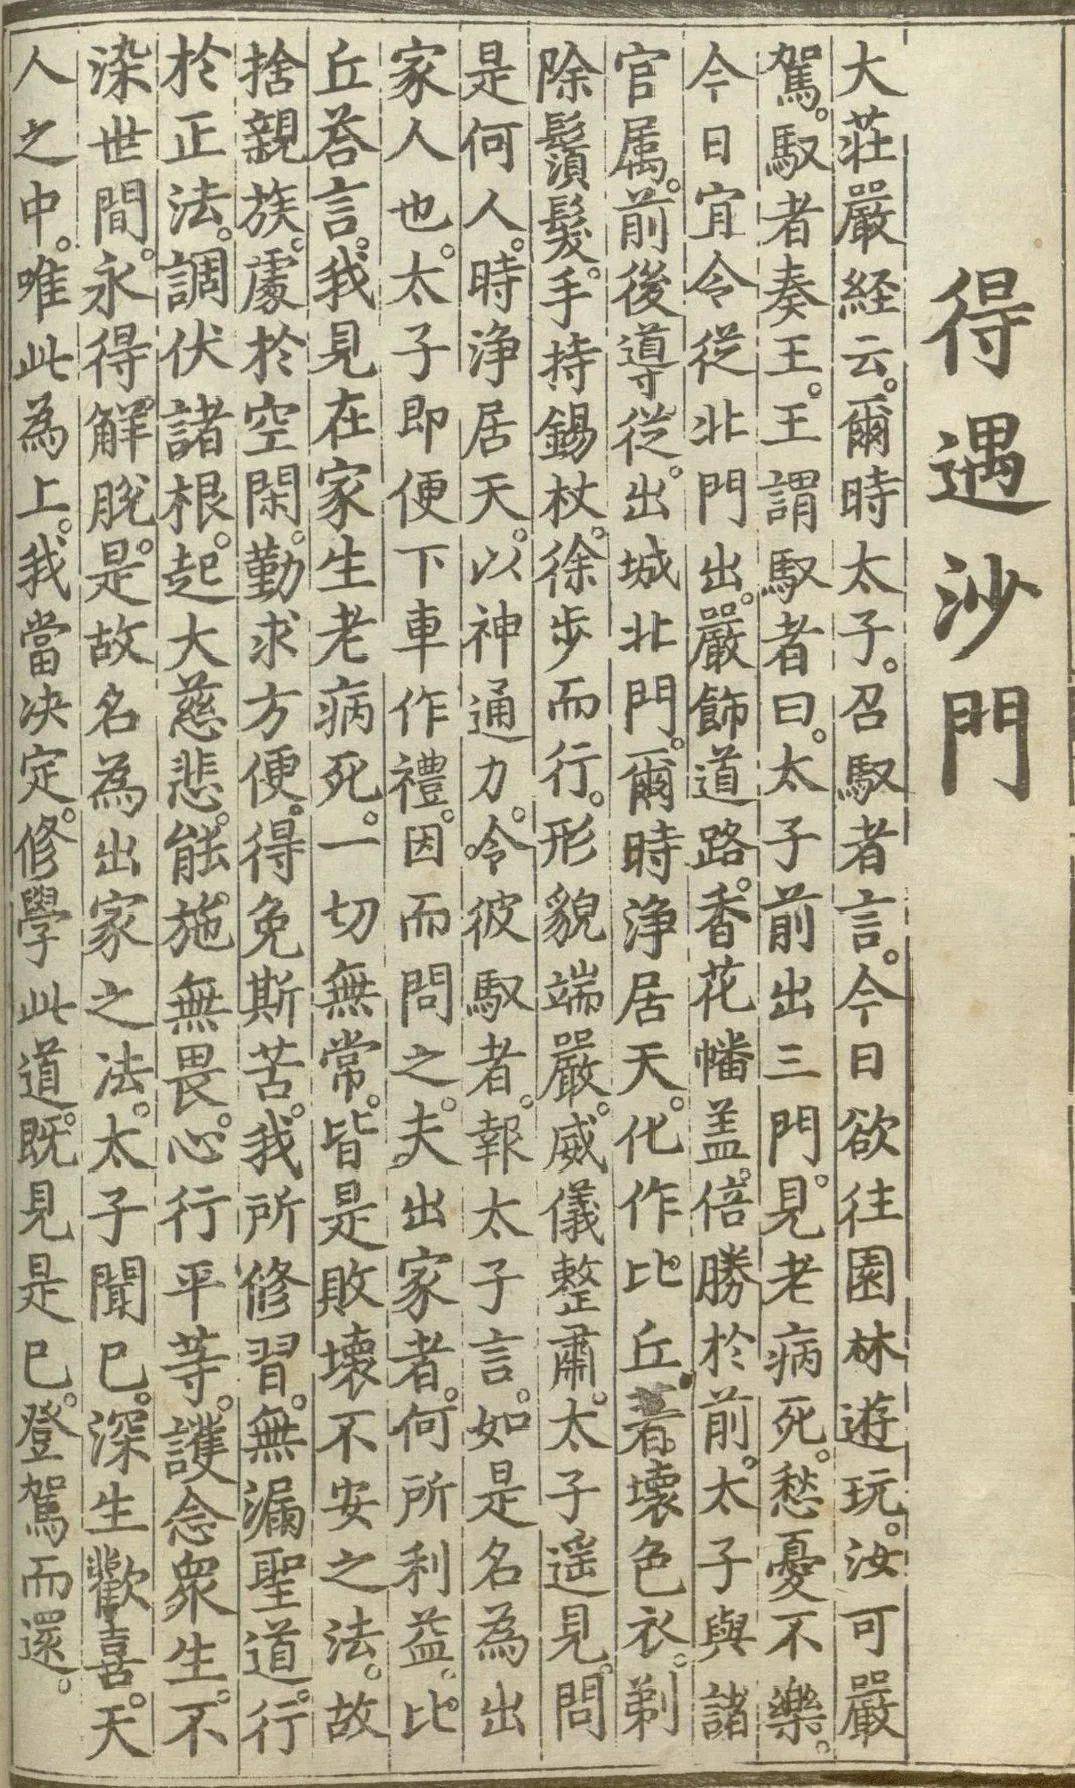 得遇沙門
大莊嚴経云。爾時太子。召馭者言。今日欲往園林遊玩。汝可嚴
駕。馭者奏王。王謂馭者曰。太子前出三門。見老病死。愁憂不樂。
今日宜令從北門出。嚴飾道路。香花幡盖。倍勝於前。太子與諸
官属。前後導從。出城北門。爾時淨居天。化作比丘。著壞色衣。剃
除鬚髮。手持錫杖。徐步而行。形貌端嚴。威儀整肅。太子遥見。問
是何人。時淨居天。以神通力。令彼馭者。報太子言。如是名為出
家人也。太子即便下車作禮。因而問之。夫出家者。何所利益。比
丘荅言。我見在家生老病死。一切無常。皆是敗壞不安之法。故
捨親族。處於空閑。勤求方便。得免斯苦。我所修習。無漏聖道。行
於正法。調伏諸根。起大慈悲。能施無畏。心行平等。護念衆生。不
染世間。永得解脫。是故名為出家之法。太子聞已。深生歡喜。天
人之中。唯此為上。我當决定。修學此道。既見是已。登駕而還。